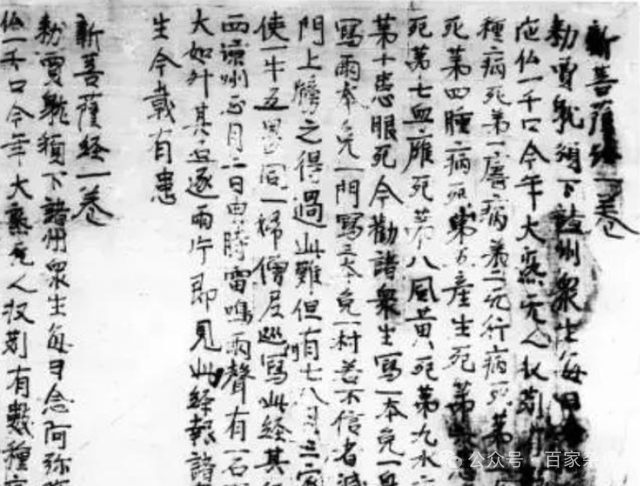 新菩薩經一卷
勑賈耽頒下諸州衆生每日念
应仏一千口今年大熟无人收刈有
種病死第一虐病死第二天行病死第
死第四腫病死第五產生死第六患
死第七血癰死第八風黄死第九水
第十患眼死今勸諸衆生寫一本免一身
寫兩本免一門寫三本免一村若不信者滅
門上牓之得過此難但有七八月三家
使一牛五男同一婦僧尼巡寫此經其
西涼州正月二日盘時雷鳴雨聲有一石
大如升其石遂兩片即見此經報諸
生今載有患
新菩薩経一卷
勑賈耽頒下諸州衆生每日念阿弥
仏一千口今年大熟无人收刈有數種
公众号·百家